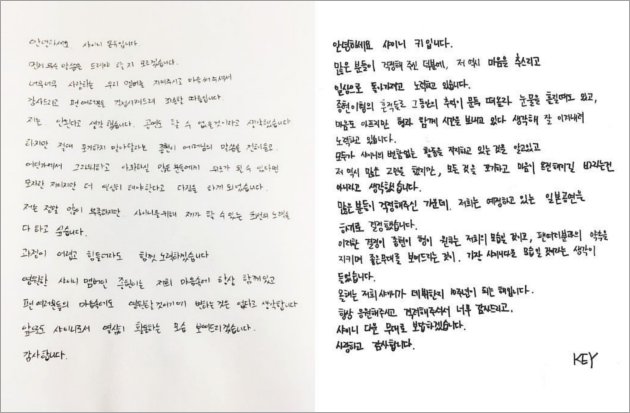 안녕하세요 샤이니 민호입니다
먼저 무슨 말씀을 드려야 할 지 모르겠습니다.
너무너무 사랑하는 우리 멤버를 지켜주시고 마음 써주셔서
감사드리고 팬여러분들 걱정시켜드려 죄송할 따름입니다
저는 안된다고 생각했습니다. 공연도 할 수 없을것이라고 생각했습니다
하지만 절대 무너지면 안된다는 종현이 어머님의 말씀을 전해듣고
어딘가에서 그리워하고 아파하실 많은 분들에게 위로가 될 수 있다면
모자란 저희지만 더 열심히 해야한다고 다짐을 하게 되었습니다.
저는 정말 많이 부족하지만 샤이니를 위해 제가 할 수 있는 최선의 노력을
다 하고 싶습니다.
과정이 어렵고 힘들더라도 힘껏 노력하겠습니다
영원한 샤이니 멤버인 종현이는 저희 마음속에 항상 함께 있고
팬 여러분들의 마음속에도 영원할 것이기에 변하는 것은 없다고 생각합니다
앞으로도 샤이니로서 열심히 활동하는 모습 보여드리겠습니다.
감사합니다.
안녕하세요 샤이니 키입니다.
많은 분들이 걱정해 주신 덕분에, 저 역시 마음을 추스리고
일상으로 돌아가려고 노력하고 있습니다.
종현이형의 흔적들과 그동안의 추억이 문득 떠올라 눈물을 흘릴때도 있고,
마음도 아프지만 형과 함께 시간을 보내고 있다 생각해 잘 이겨내려
노력하고 있습니다.
모두가 샤이니의 변함없는 활동을 걱정하고 있는 것을 알고있고
저 역시 많은 고민을 했지만, 모든 것을 포기하고 마음이 온전해지길 바라는건
아니라고 생각했습니다.
많은 분들이 걱정해주신 가운데, 저희는 예정되어 있는 일본공연을
하기로 결정했습니다.
이러한 결정이 종현이 형이 원하는 저희의 모습일 것이고, 팬여러분과의 약속을
지키며 좋은무대를 보여드리는 것이, 가장 샤이니다운 모습일 것이라는 생각이
들었습니다.
올해는 저희 샤이니가 데뷔한지 10주년이 되는 해입니다.
항상 응원해주시고 격려해주셔서 너무 감사드리고,
샤이니 다운 무대로 보답하겠습니다.
사랑하고 감사합니다.
KEY